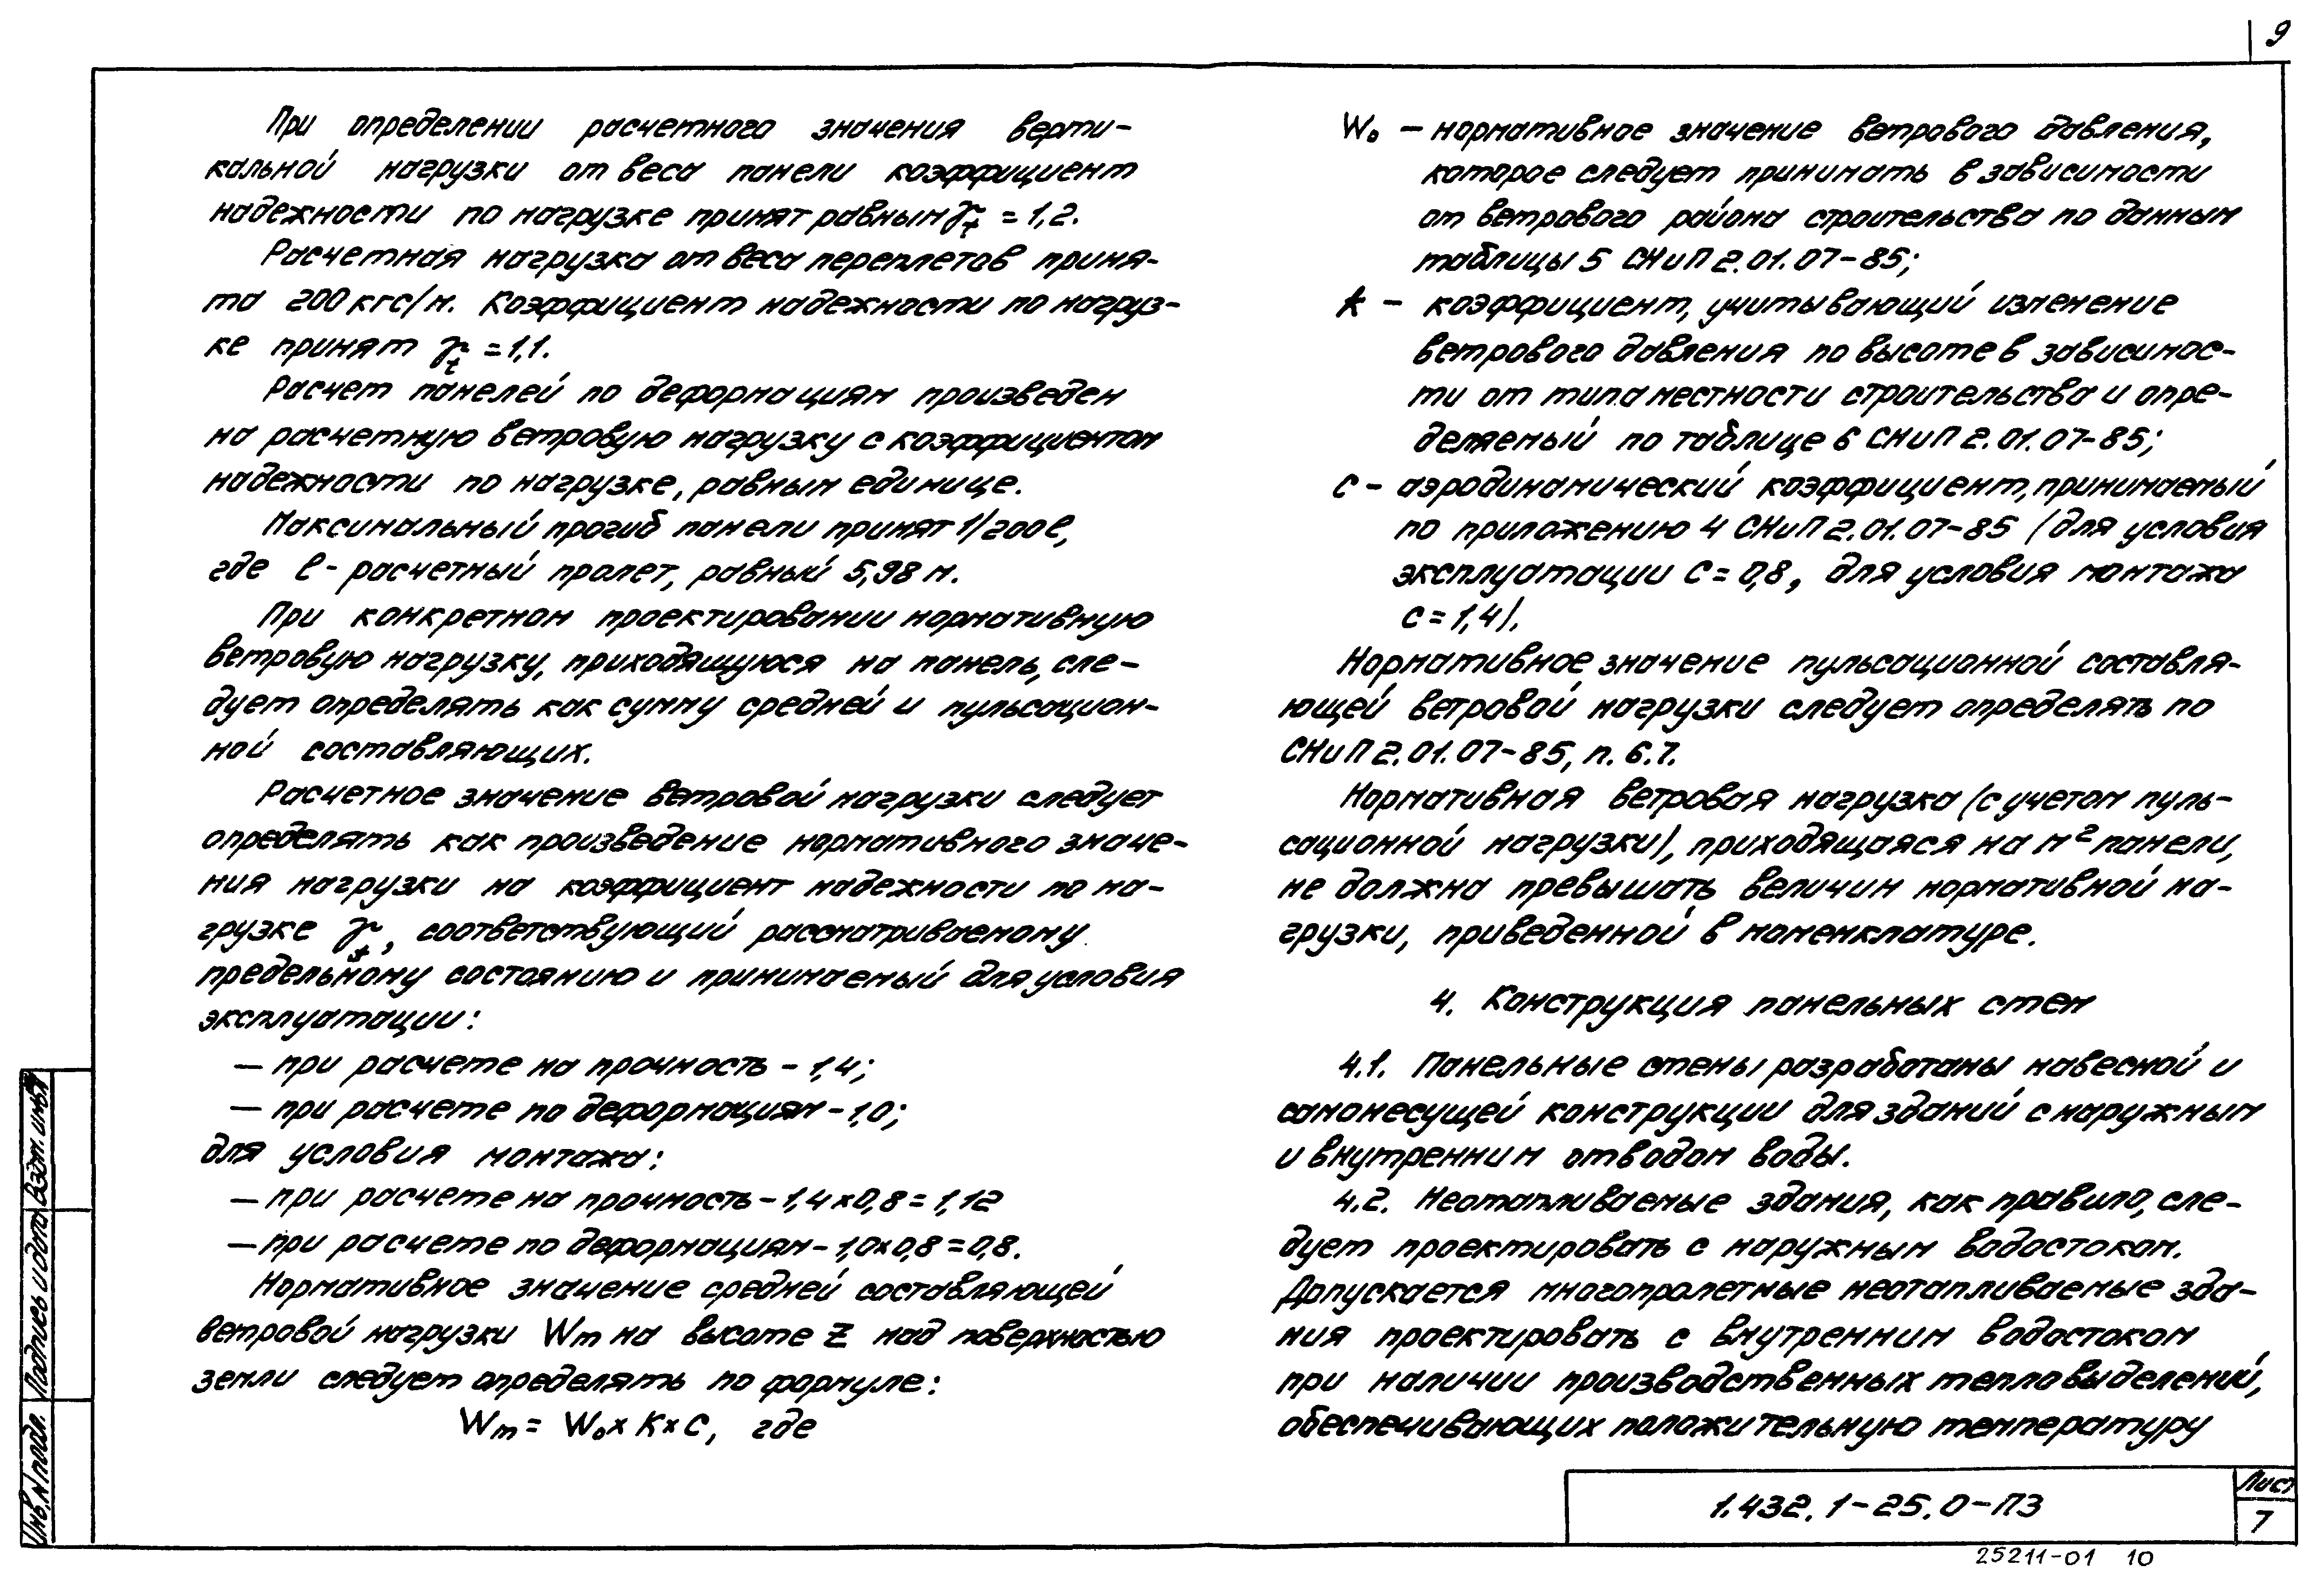 9
При определении расчетного значения верти-
кальной нагрузки от веса панели коэффициент
надежности по нагрузке принят равным γt = 1,2.
Расчетная нагрузка от веса переплетов приня-
та 200 кгс/м. Коэффициент надежности по нагруз-
ке принят γt = 1,1.
Расчет панелей по деформациям произведен
на расчетную ветровую нагрузку с коэффициентом
надежности по нагрузке, равным единице.
Максимальный прогиб панели принят 1/200 ℓ,
где ℓ - расчетный пролет, равный 5,98 м.
При конкретном проектировании нормативную
ветровую нагрузку, приходящуюся на панель, сле-
дует определять как сумму средней и пульсацион-
ной составляющих.
Расчетное значение ветровой нагрузки следует
определять как произведение нормативного значе-
ния нагрузки на коэффициент надежности по на-
грузке γt, соответствующий рассматриваемому
предельному состоянию и принимаемый для условия
эксплуатации:
— при расчете на прочность - 1,4;
— при расчете по деформациям - 1,0;
для условия монтажа:
— при расчете на прочность - 1,4×0,8 = 1,12
— при расчете по деформациям - 1,0×0,8 = 0,8.
Нормативное значение средней составляющей
ветровой нагрузки Wm на высоте Z над поверхностью
земли следует определять по формуле:
Wm = W₀ × K × C, где
W₀ - нормативное значение ветрового давления,
которое следует принимать в зависимости
от ветрового района строительства по данным
таблицы 5 СНиП 2.01.07-85;
k - коэффициент, учитывающий изменение
ветрового давления по высоте в зависимос-
ти от типа местности строительства и опре-
деляемый по таблице 6 СНиП 2.01.07-85;
с - аэродинамический коэффициент, принимаемый
по приложению 4 СНиП 2.01.07-85 (для условия
эксплуатации С = 0,8, для условия монтажа
С = 1,4).
Нормативное значение пульсационной составля-
ющей ветровой нагрузки следует определять по
СНиП 2.01.07-85, п. 6.7.
Нормативная ветровая нагрузка (с учетом пуль-
сационной нагрузки), приходящаяся на м² панели,
не должна превышать величин нормативной на-
грузки, приведенной в номенклатуре.
4. Конструкция панельных стен
4.1. Панельные стены разработаны навесной и
самонесущей конструкции для зданий с наружным
и внутренним отводом воды.
4.2. Неотапливаемые здания, как правило, сле-
дует проектировать с наружным водостоком.
Допускается многопролетные неотапливаемые зда-
ния проектировать с внутренним водостоком
при наличии производственных тепловыделений,
обеспечивающих положительную температуру
Инв. N подл. Подпись и дата Взам. инв. N
1.432.1-25.0-ПЗ
Лист
7
25211-01 10